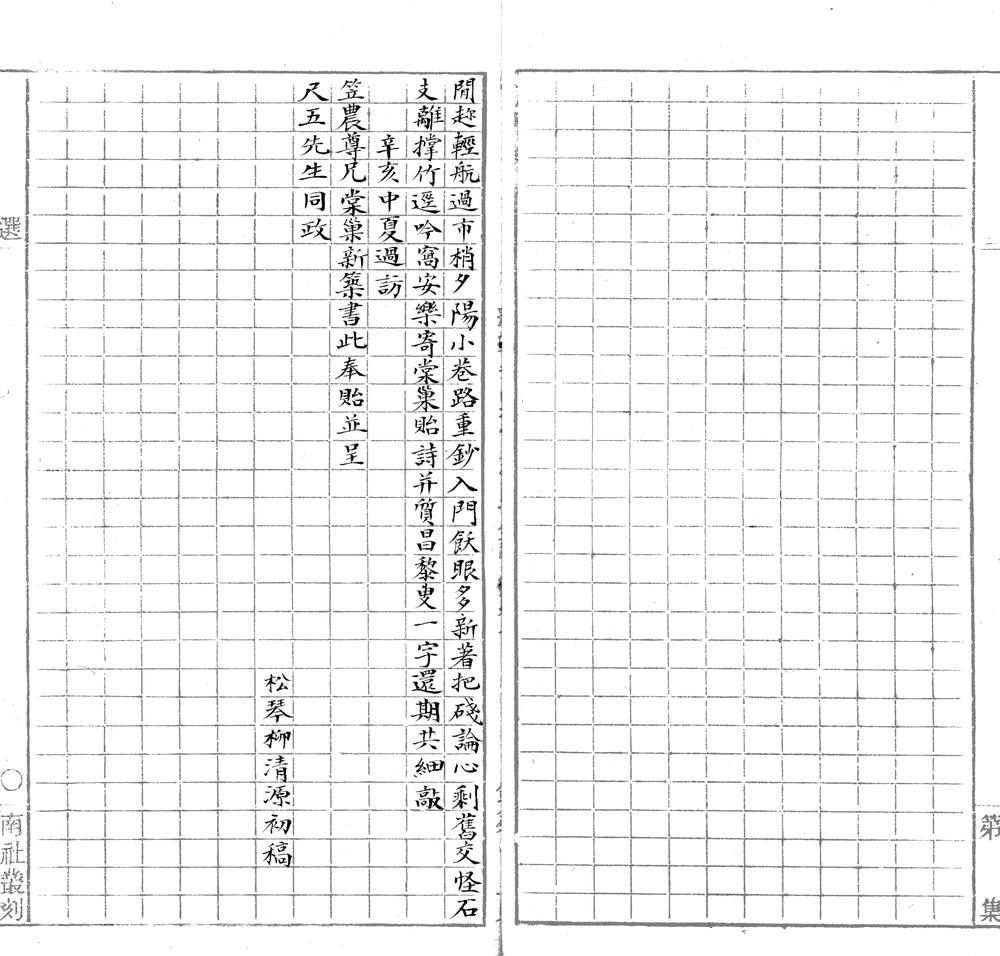 第集
閒趂輕航過市梢夕陽小巷路重鈔入門飫眼多新著把醆論心剩舊交怪石
支離撑竹逕吟窩安樂寄棠巢貽詩并質昌黎叟一字還期共細敲
辛亥中夏過訪
笠農尊兄棠巢新築書此奉貽並呈
尺五先生同政
松琴柳清源初稿
選〇南社叢刻